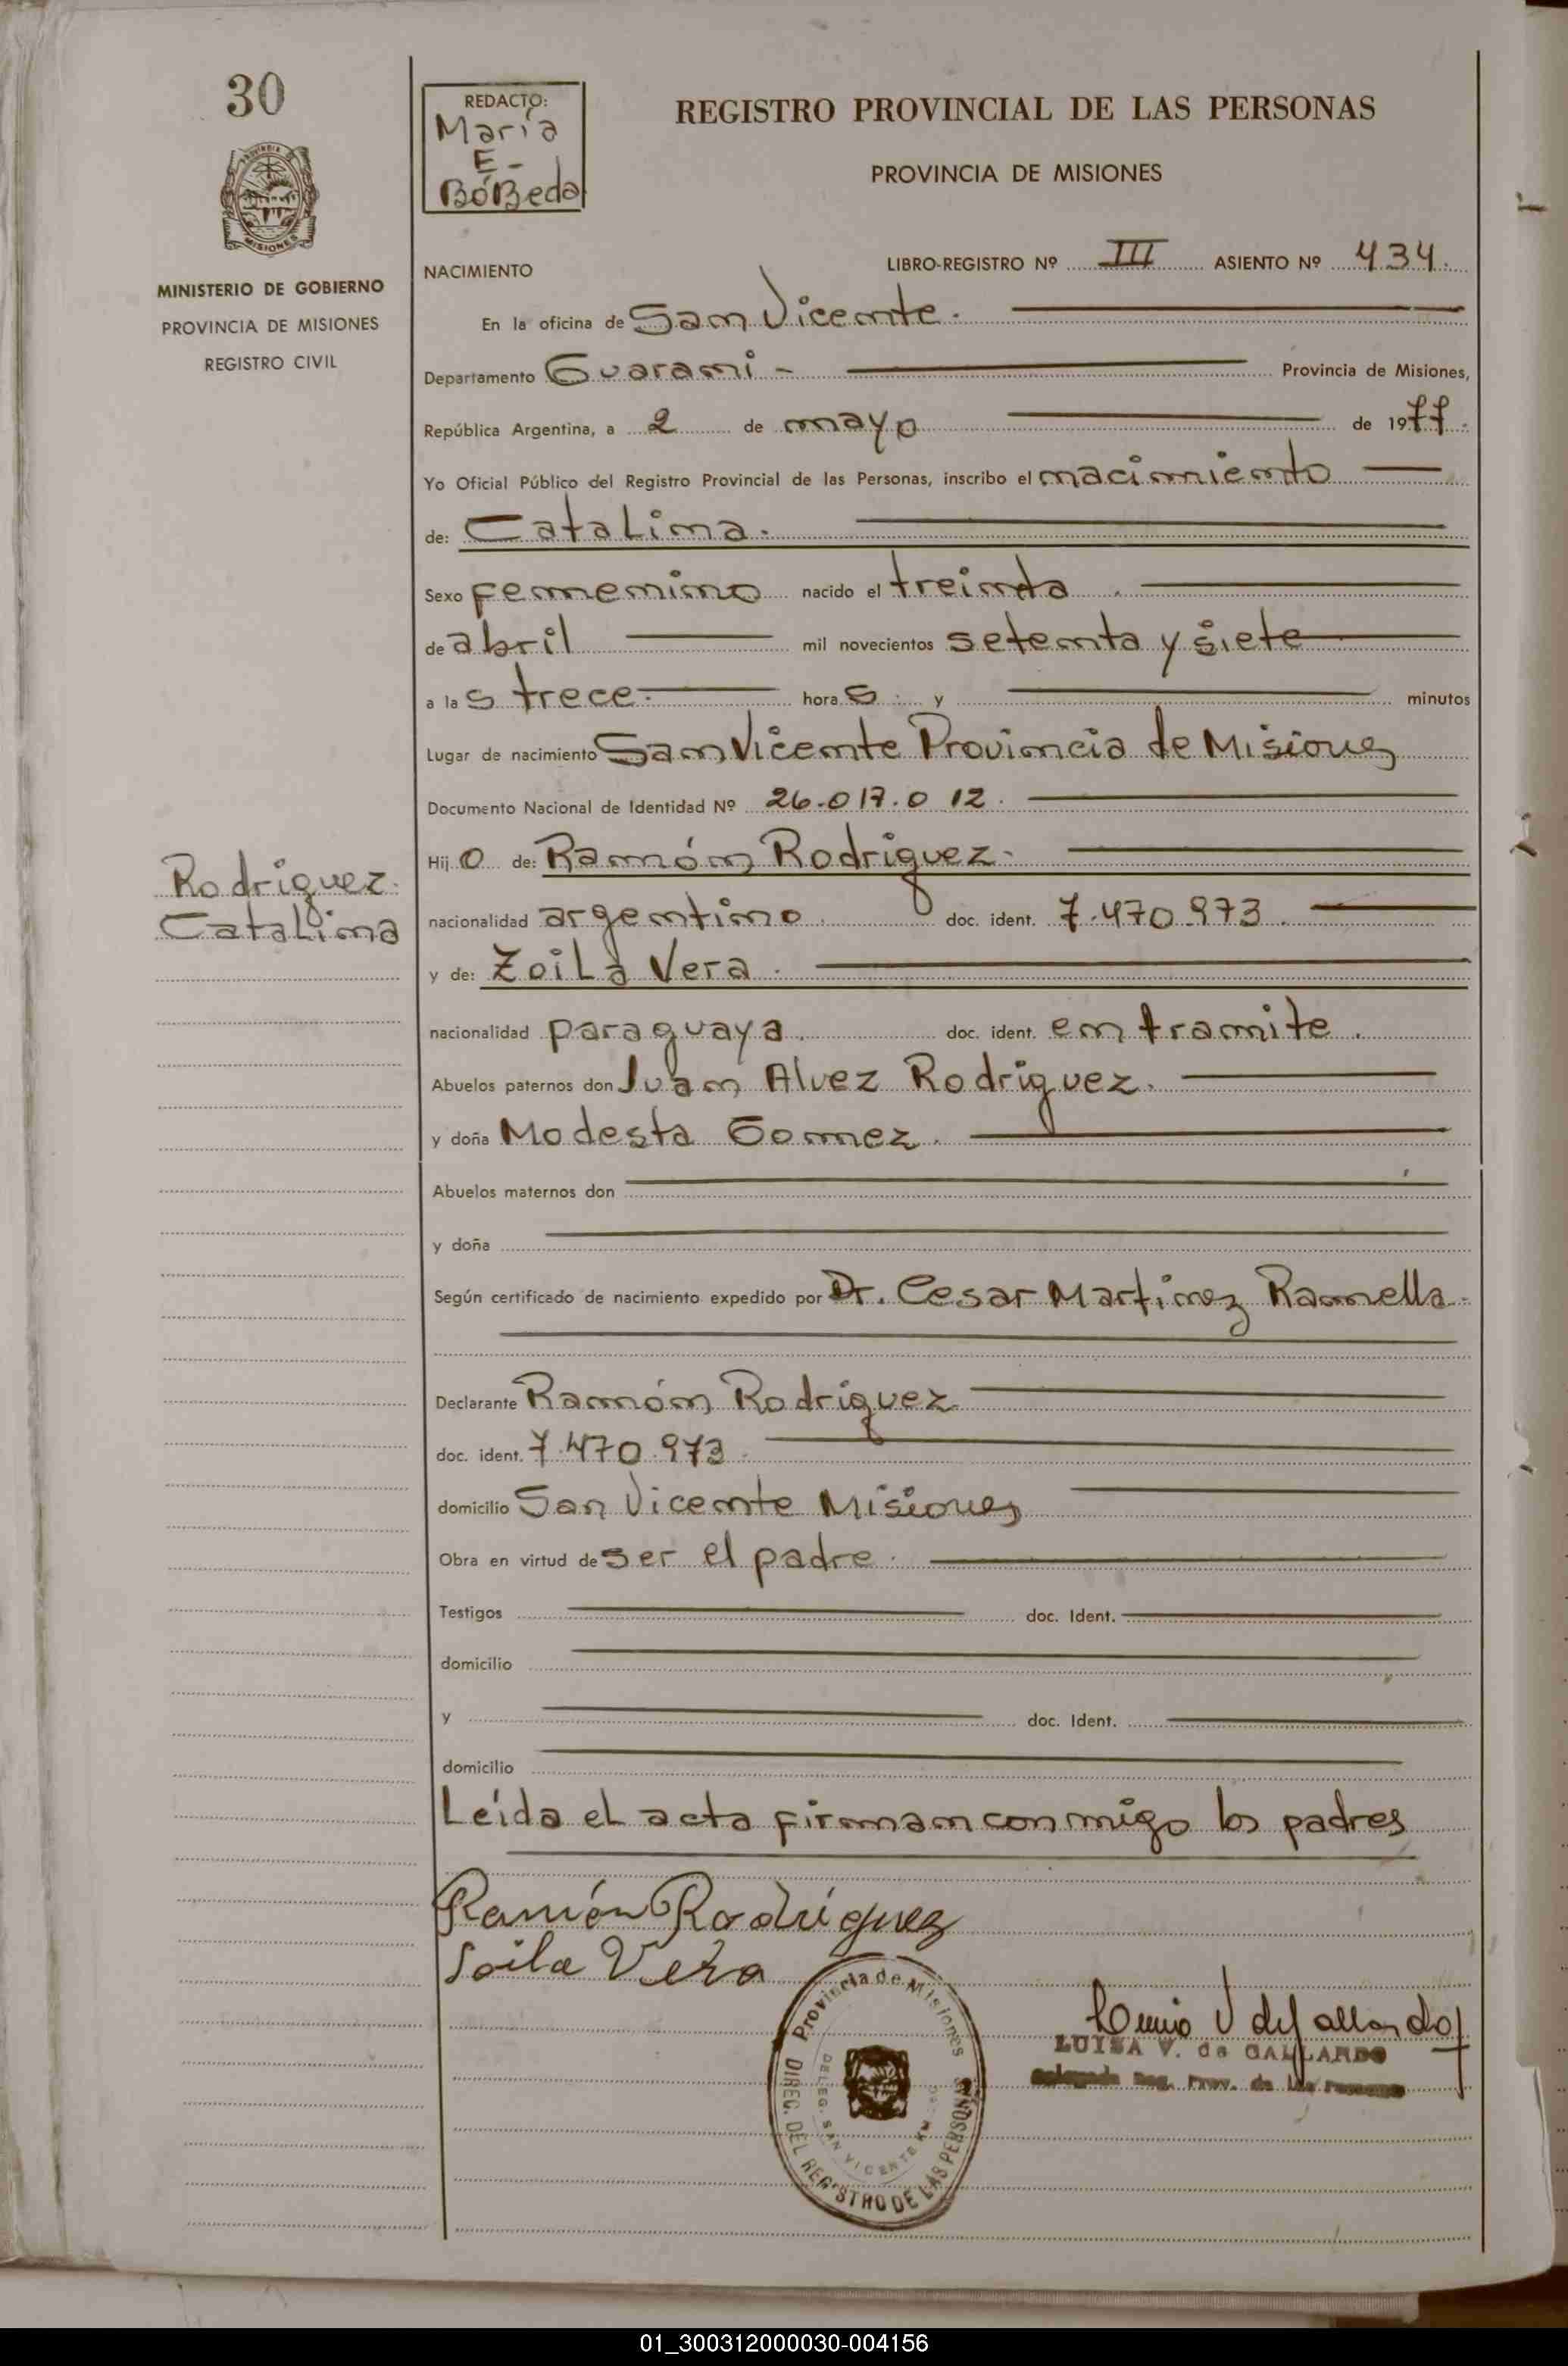 30
REDACTO:
María
E-
BóBeda
REGISTRO PROVINCIAL DE LAS PERSONAS
PROVINCIA DE MISIONES
MISIONES
MINISTERIO DE GOBIERNO
PROVINCIA DE MISIONES
REGISTRO CIVIL
NACIMIENTO
LIBRO-REGISTRO Nº III ASIENTO Nº 434.
En la oficina de San Vicente.
Departamento Guarani - Provincia de Misiones,
República Argentina, a 2 de mayo de 1977.
Yo Oficial Público del Registro Provincial de las Personas, inscribo el nacimiento
de: Catalina.
Sexo femenino nacido el treinta
de abril mil novecientos setenta y siete
a las trece. horas y minutos
Lugar de nacimiento San Vicente Provincia de Misiones
Documento Nacional de Identidad Nº 26.017.012.
Hijo de: Ramón Rodriguez.
Rodriguez.
Catalina
nacionalidad argentino doc. ident. 7.470.973.
y de: Zoila Vera.
nacionalidad paraguaya. doc. ident. en tramite.
Abuelos paternos don Juan Alvez Rodriguez.
y doña Modesta Gomez.
Abuelos maternos don
y doña
Según certificado de nacimiento expedido por Dr. Cesar Martinez Ramella.
Declarante Ramón Rodriguez
doc. ident. 7.470.973.
domicilio San Vicente Misiones
Obra en virtud de ser el padre.
Testigos doc. Ident.
domicilio
y doc. Ident.
domicilio
Leída el acta firman conmigo los padres
Ramón Rodríguez
Soila Vera
Provincia de Misiones
DIREC. DEL REGISTRO DE LAS PERSONAS
DELEG. SAN VICENTE KM
LUISA V. de GALLARDO
Delegada Reg. Prov. de las Personas
01_300312000030-004156